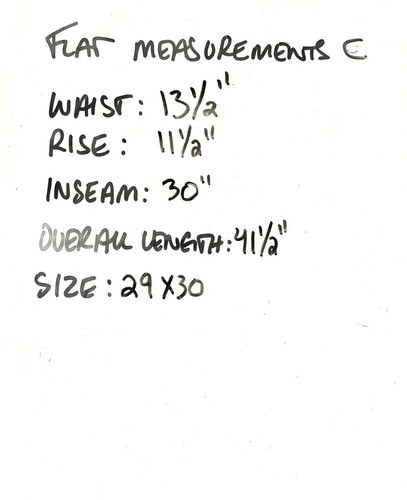 FLAT MEASUREMENTS C
WAIST: 13½"
RISE: 11½"
INSEAM: 30"
OVERALL LENGTH: 41½"
SIZE: 29X30